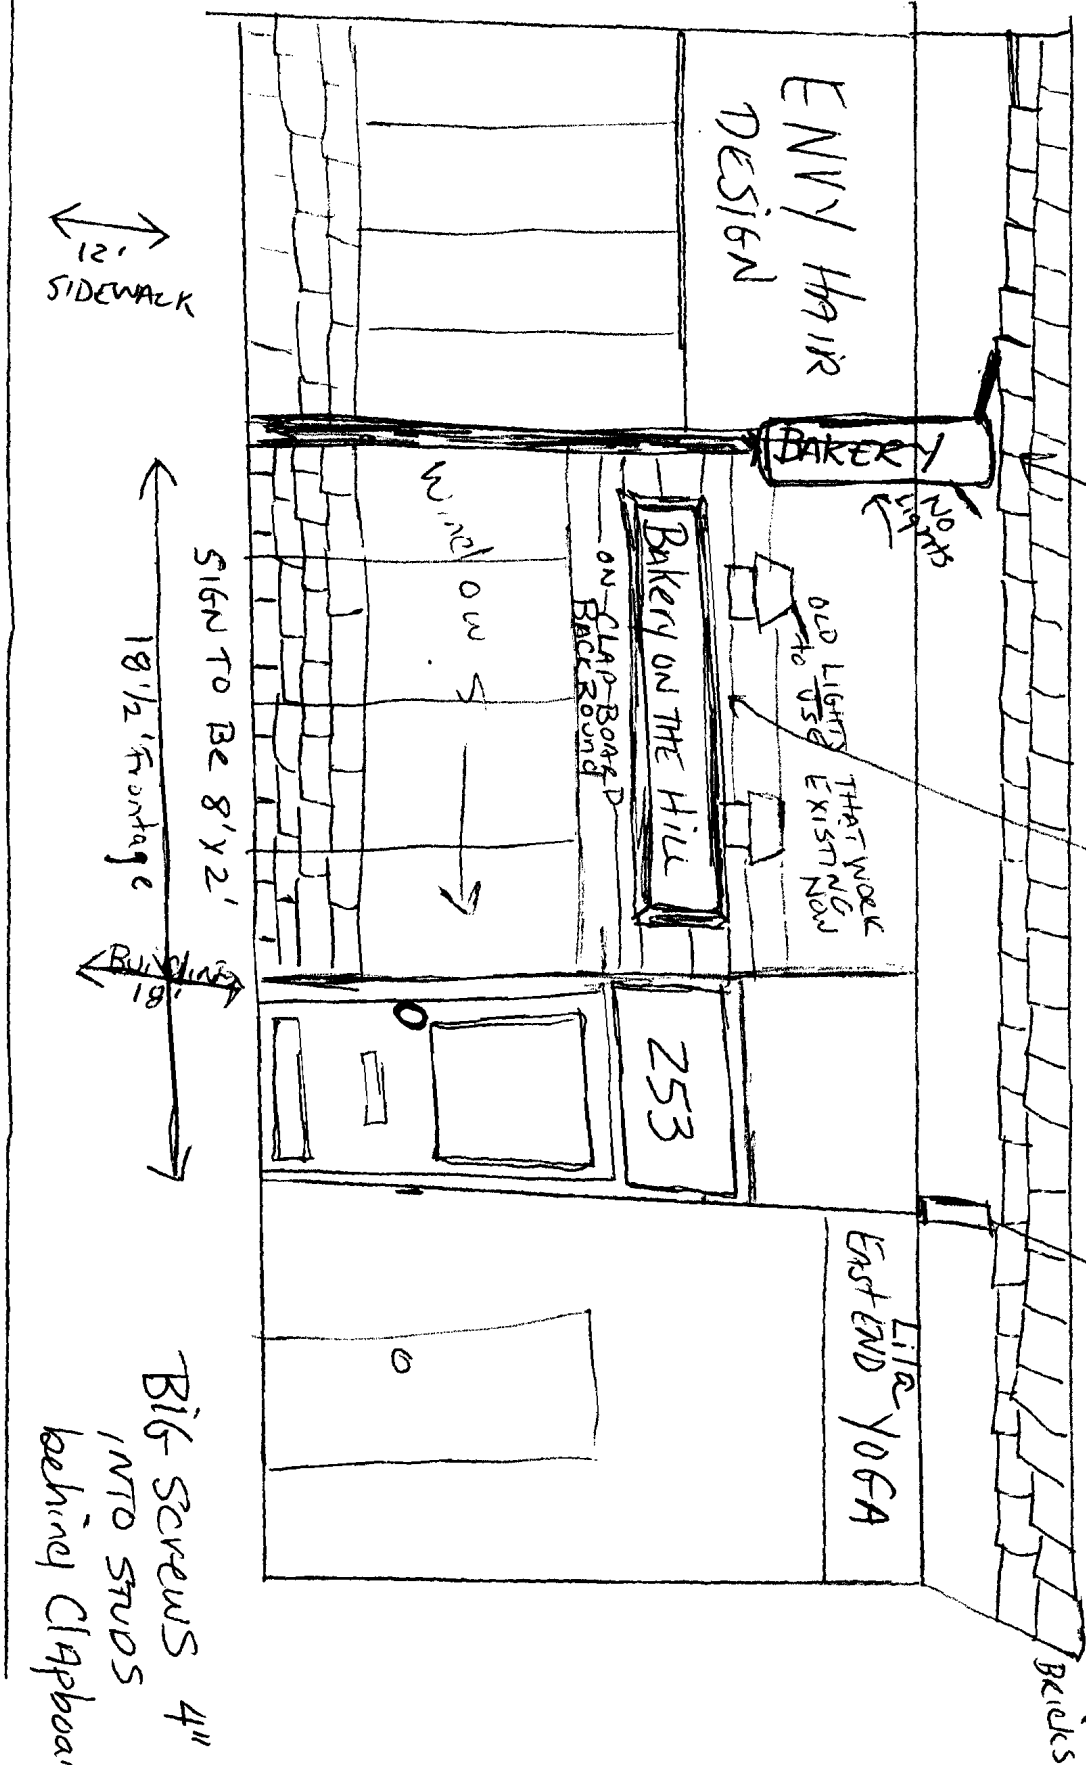 BRICKS
ENVY HAIR
DESIGN
BAKERY
NO
Lights
OLD LIGHTS THAT WORK
to USE EXISTING
NOW
Bakery ON THE HILL
ON CLAP-BOARD
BACKROUND
Windows
253
Lila
EAST END YOGA
12'
SIDEWALK
SIGN TO Be 8'x2'
18 1/2' Frontage
BUILDING
18'
BIG SCREWS 4"
INTO STUDS
behind Clapboar